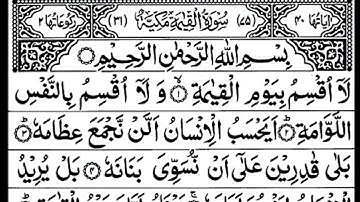 اٰيَاتُهَا ٤٠ (٧٥) سُوْرَةُ الْقِيٰمَةِ مَكِّيَّةٌ (٣١) رُكُوْعَاتُهَا ٢
بِسْمِ اللّٰهِ الرَّحْمٰنِ الرَّحِيْمِ
لَاۤ اُقْسِمُ بِيَوْمِ الْقِيٰمَةِ ۙ۱ وَ لَاۤ اُقْسِمُ بِالنَّفْسِ
اللَّوَّامَةِ ؕ۲ اَيَحْسَبُ الْاِنْسَانُ اَلَّنْ نَّجْمَعَ عِظَامَهٗ ؕ۳
بَلٰى قٰدِرِيْنَ عَلٰۤى اَنْ نُّسَوِّيَ بَنَانَهٗ ۴ بَلْ يُرِيْدُ